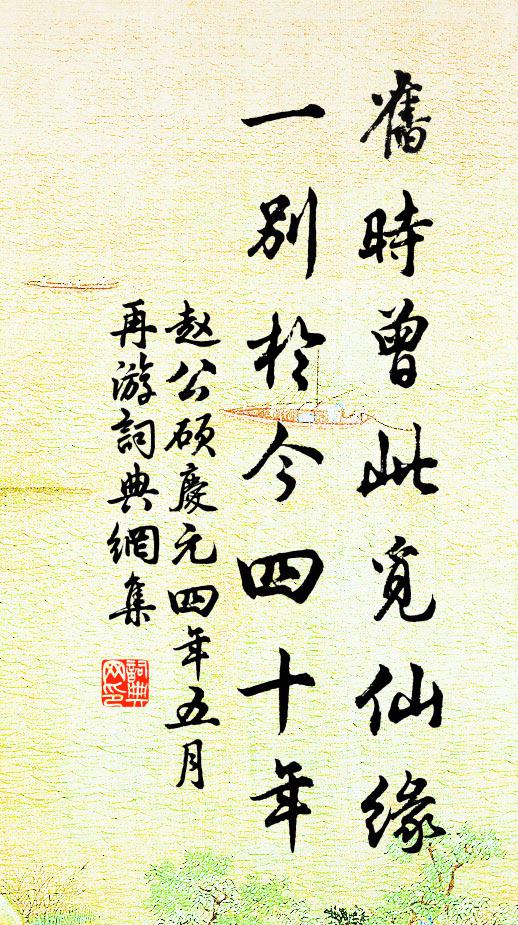 舊時曾此覓仙緣
一別於今四十年
赵公硕慶元四年五月
再游詞典網集
詞典网印